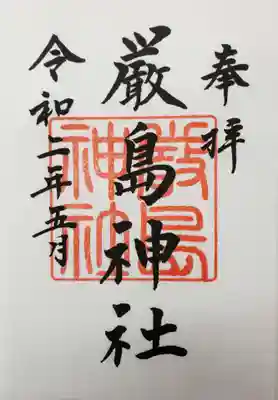 奉拝
厳島神社
嚴島
神社
令和二年五月